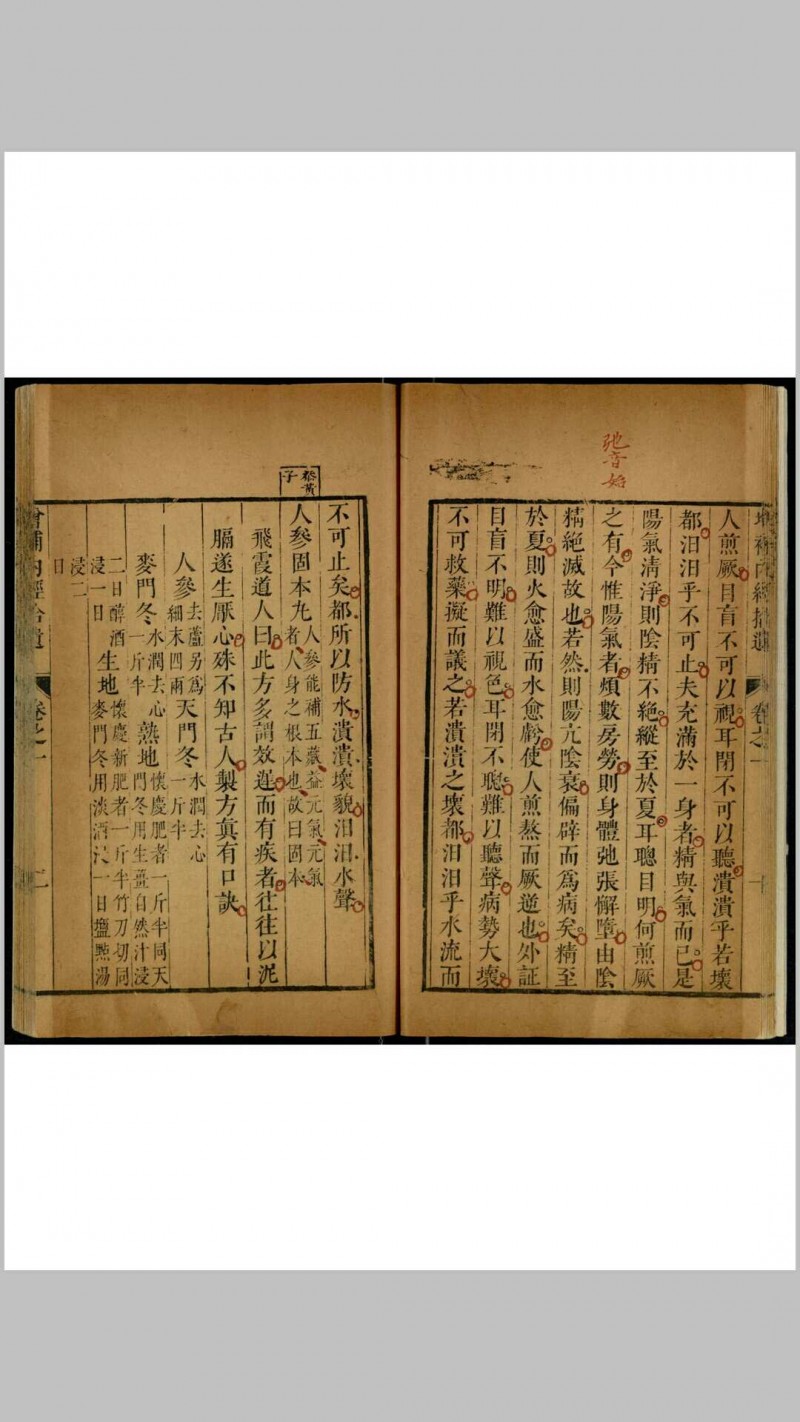 弛音始
增補內經拾遺
卷之一
人煎厥目盲不可以視耳閉不可以聽潰潰乎若壞
都汨汨乎不可止夫充滿於一身者精與氣而已是
陽氣清淨則陰精不絶縱至於夏耳聰目明何煎厥
之有今惟陽氣者煩數房勞則身體弛張懈墮由陰
精絶滅故也若然則陽亢陰衰偏辟而爲病矣精至
於夏則火愈盛而水愈虧使人煎熬而厥逆也外証
目盲不明難以視色耳閉不聰難以聽聲病勢大壞
不可救藥擬而議之若潰潰之壞都汨汨乎水流而
不可止矣都所以防水潰潰壞貌汨汨水聲
蔡黃
子
人參固本丸
人參能補五藏益元氣元氣
者人身之根本也故曰固本
飛霞道人曰此方多謂效遲而有疾者往往以泥
膈遂生厭心殊不知古人製方眞有口訣
人參
去蘆另爲
細末四兩
天門冬
水潤去心
一斤半
麥門冬
水潤去心
一斤半
熟地
懷慶肥者一斤半同天
門冬用生薑自然汁浸
二日醉酒
浸一日
生地
懷慶新肥者一斤半竹刀切同
麥門冬用淡酒浸一日鹽㸃湯
浸二
日
增補內經拾遺
卷之一
二